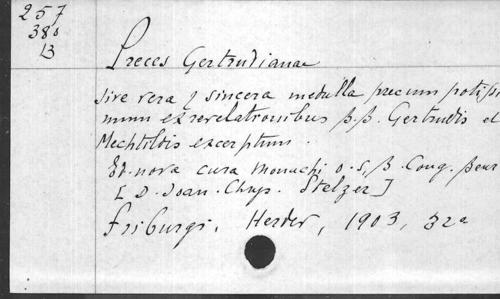 257
380
B
Preces Gertrudianae
sive vera & sincera medulla precum potissi
mum ex revelationibus B.B. Gertrudis et
Mechtildis excerptum.
Ed. nova cura monachi o. S. B. Cong. Beur
[D. Joan. Chrys. Stelzer]
Friburgi, Herder, 1903, 32º